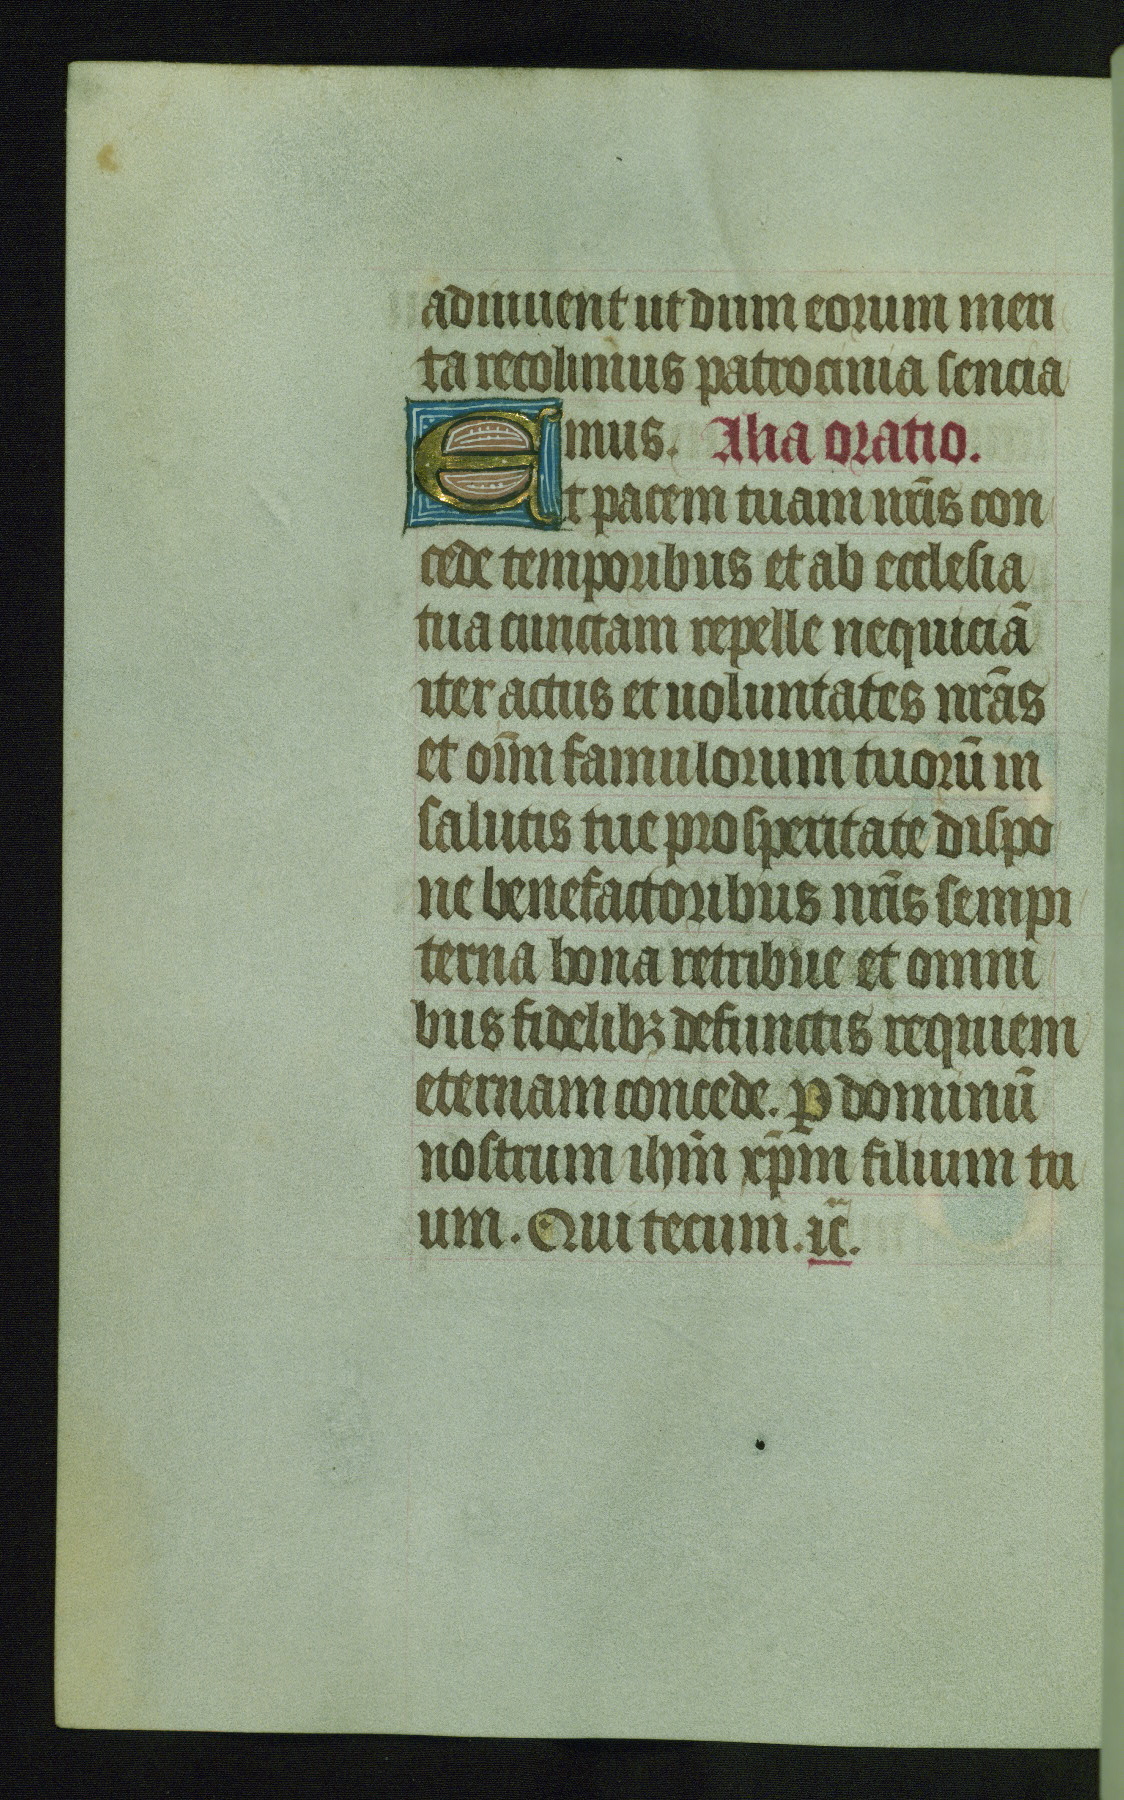 adiuuent ut dum eorum meri
ta recolimus patrocinia sencia
mus. Alia oratio.
Et pacem tuam nr̄is con
cede temporibus et ab ecclesia
tua cunctam repelle nequiciā
iter actus et uoluntates nrās
et oīm famulorum tuorū in
salutis tue prosperitate dispo
ne benefactoribus nr̄is sempi
terna bona retribue et omni
bus fidelibꝫ defunctis requiem
eternam concede. ꝑ dominū
nostrum ihm̄ xp̄m filium tu
um. Qui tecum. ⁊c̄.